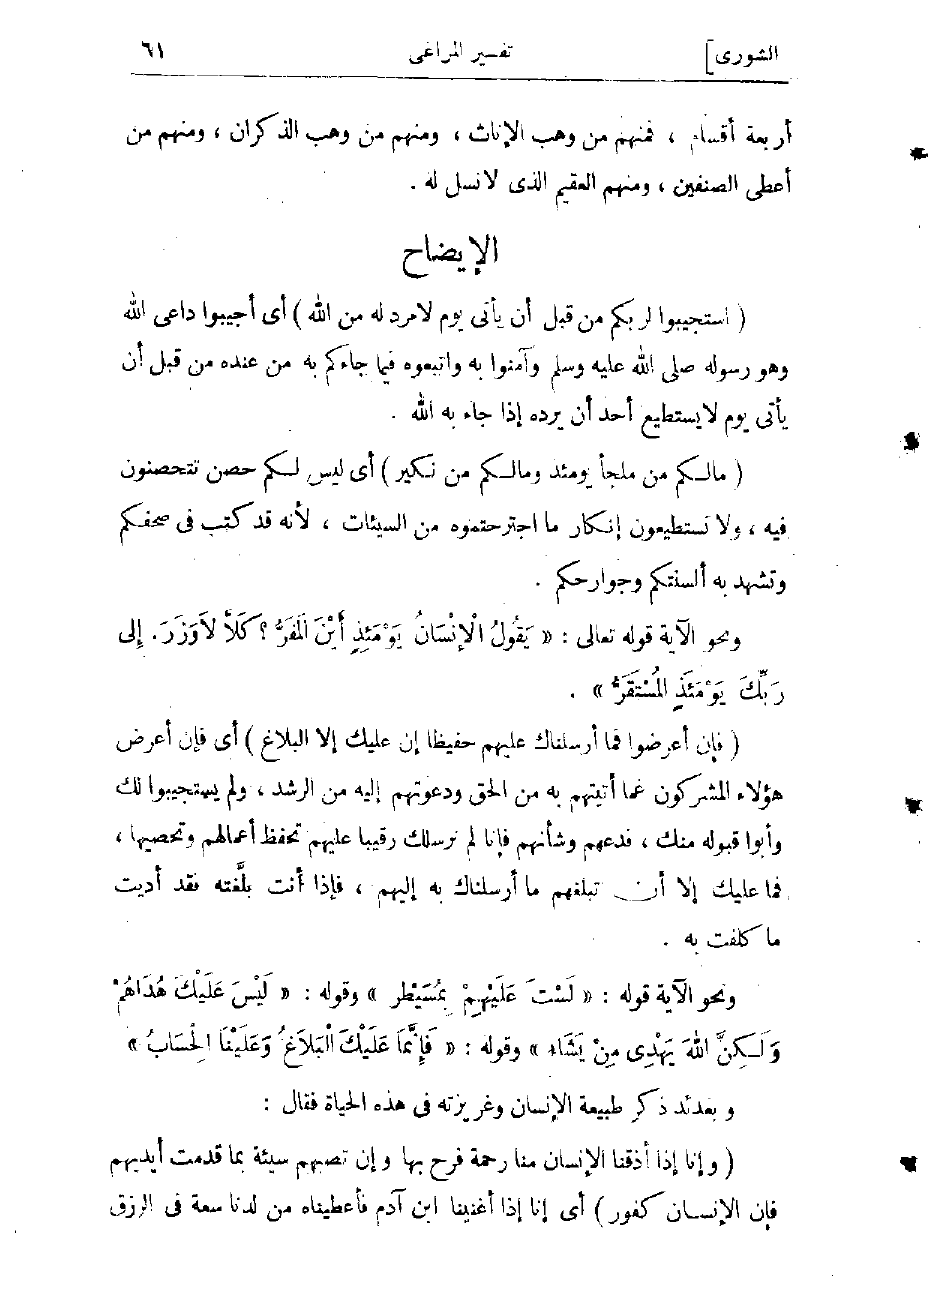 الشورى] تفسير المراغى ٦١
أربعة أقسام ، فمنهم من وهب الإناث ، ومنهم من وهب الذكران ، ومنهم من
أعطى الصنفين ، ومنهم العقيم الذى لا نسل له .
الإيضاح
( استجيبوا لربكم من قبل أن يأتى يوم لا مرد له من الله ) أى أجيبوا داعى الله
وهو رسوله صلى الله عليه وسلم وآمنوا به واتبعوه فيما جاءكم به من عنده من قبل أن
يأتى يوم لا يستطيع أحد أن يرده إذا جاء به الله .
( مالكم من ملجأ يومئذ ومالكم من نكير ) أى ليس لكم حصن تتحصنون
فيه ، ولا تستطيعون إنكار ما اجترحتموه من السيئات ، لأنه قد كتب فى صحفكم
وتشهد به ألسنتكم وجوارحكم .
ونحو الآية قوله تعالى : « يَقُولُ الْإِنْسَانُ يَوْمَئِذٍ أَيْنَ الْمَفَرُّ ؟ كَلَّا لَا وَزَرَ . إِلَى
رَبِّكَ يَوْمَئِذٍ الْمُسْتَقَرُّ » .
( فإن أعرضوا فما أرسلناك عليهم حفيظا إن عليك إلا البلاغ ) أى فإن أعرض
هؤلاء المشركون عما أتيتهم به من الحق ودعوتهم إليه من الرشد ، ولم يستجيبوا لك
وأبوا قبوله منك ، فدعهم وشأنهم فإنا لم نرسلك رقيبا عليهم تحفظ أعمالهم وتحصيها ،
فما عليك إلا أن تبلغهم ما أرسلناك به إليهم ، فإذا أنت بلَّغته فقد أديت
ما كلفت به .
ونحو الآية قوله : « لَسْتَ عَلَيْهِمْ بِمُسَيْطِرٍ » وقوله : « لَيْسَ عَلَيْكَ هُدَاهُمْ
وَلَكِنَّ اللهَ يَهْدِى مَنْ يَشَاءُ » وقوله : « فَإِنَّمَا عَلَيْكَ الْبَلَاغُ وَعَلَيْنَا الْحِسَابُ »
وبعدئذ ذكر طبيعة الإنسان وغريزته فى هذه الحياة فقال :
( وإنا إذا أذقنا الإنسان منا رحمة فرح بها وإن تصبهم سيئة بما قدمت أيديهم
فإن الإنسان كفور ) أى إنا إذا أغنينا ابن آدم فأعطيناه من لدنا سعة فى الرزق